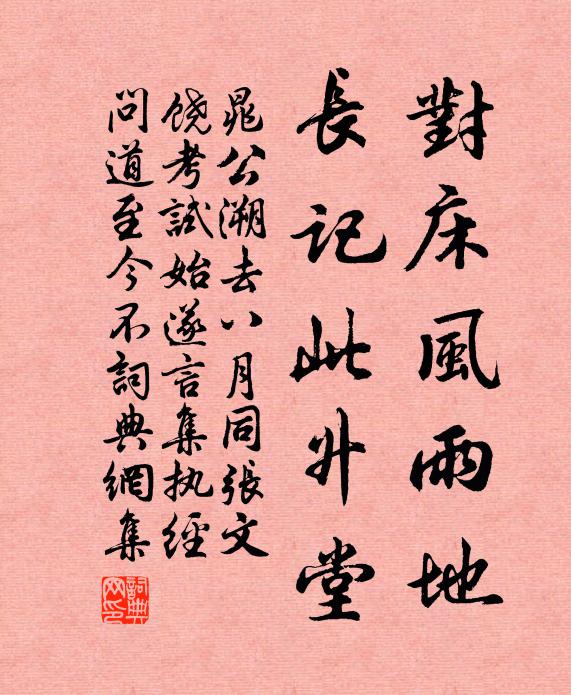 對床風雨地
長記此升堂
晁公溯去八月同張文
饒考試始遂言集执經
問道至今不詞典網集
詞典網印